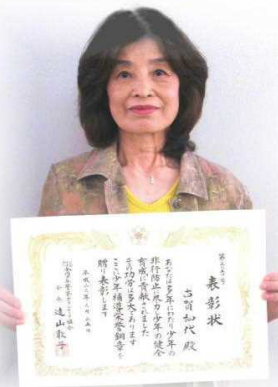 表彰状
古賀和代 殿
あなたは多年にわたり少年の
非行防止に尽力し少年の健全
育成に貢献されました
その功労は多大であります
ここに少年補導栄誉銅章を
贈り表彰します
平成二三年
会長 遠山敦子